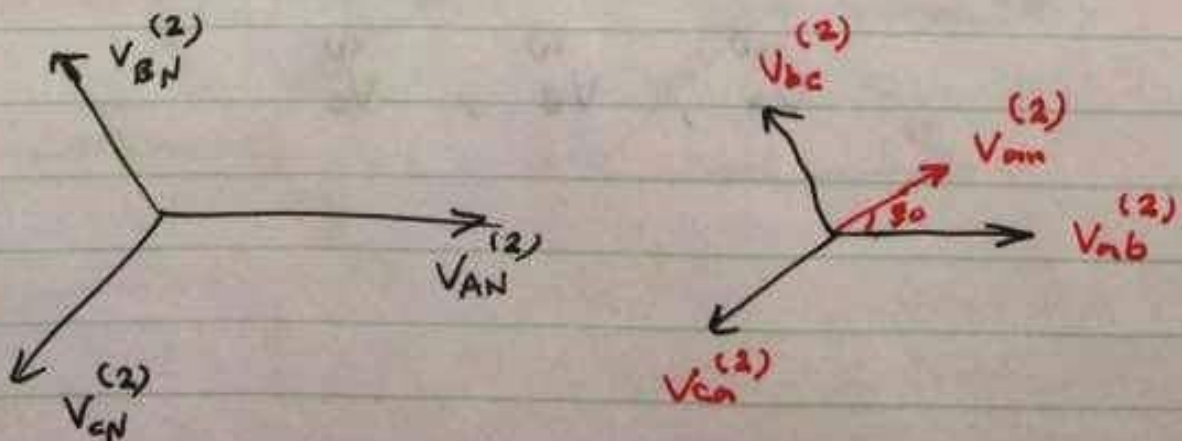 V_BN^(2)
V_AN^(2)
V_CN^(2)
V_bc^(2)
V_an^(2)
30
V_ab^(2)
V_ca^(2)